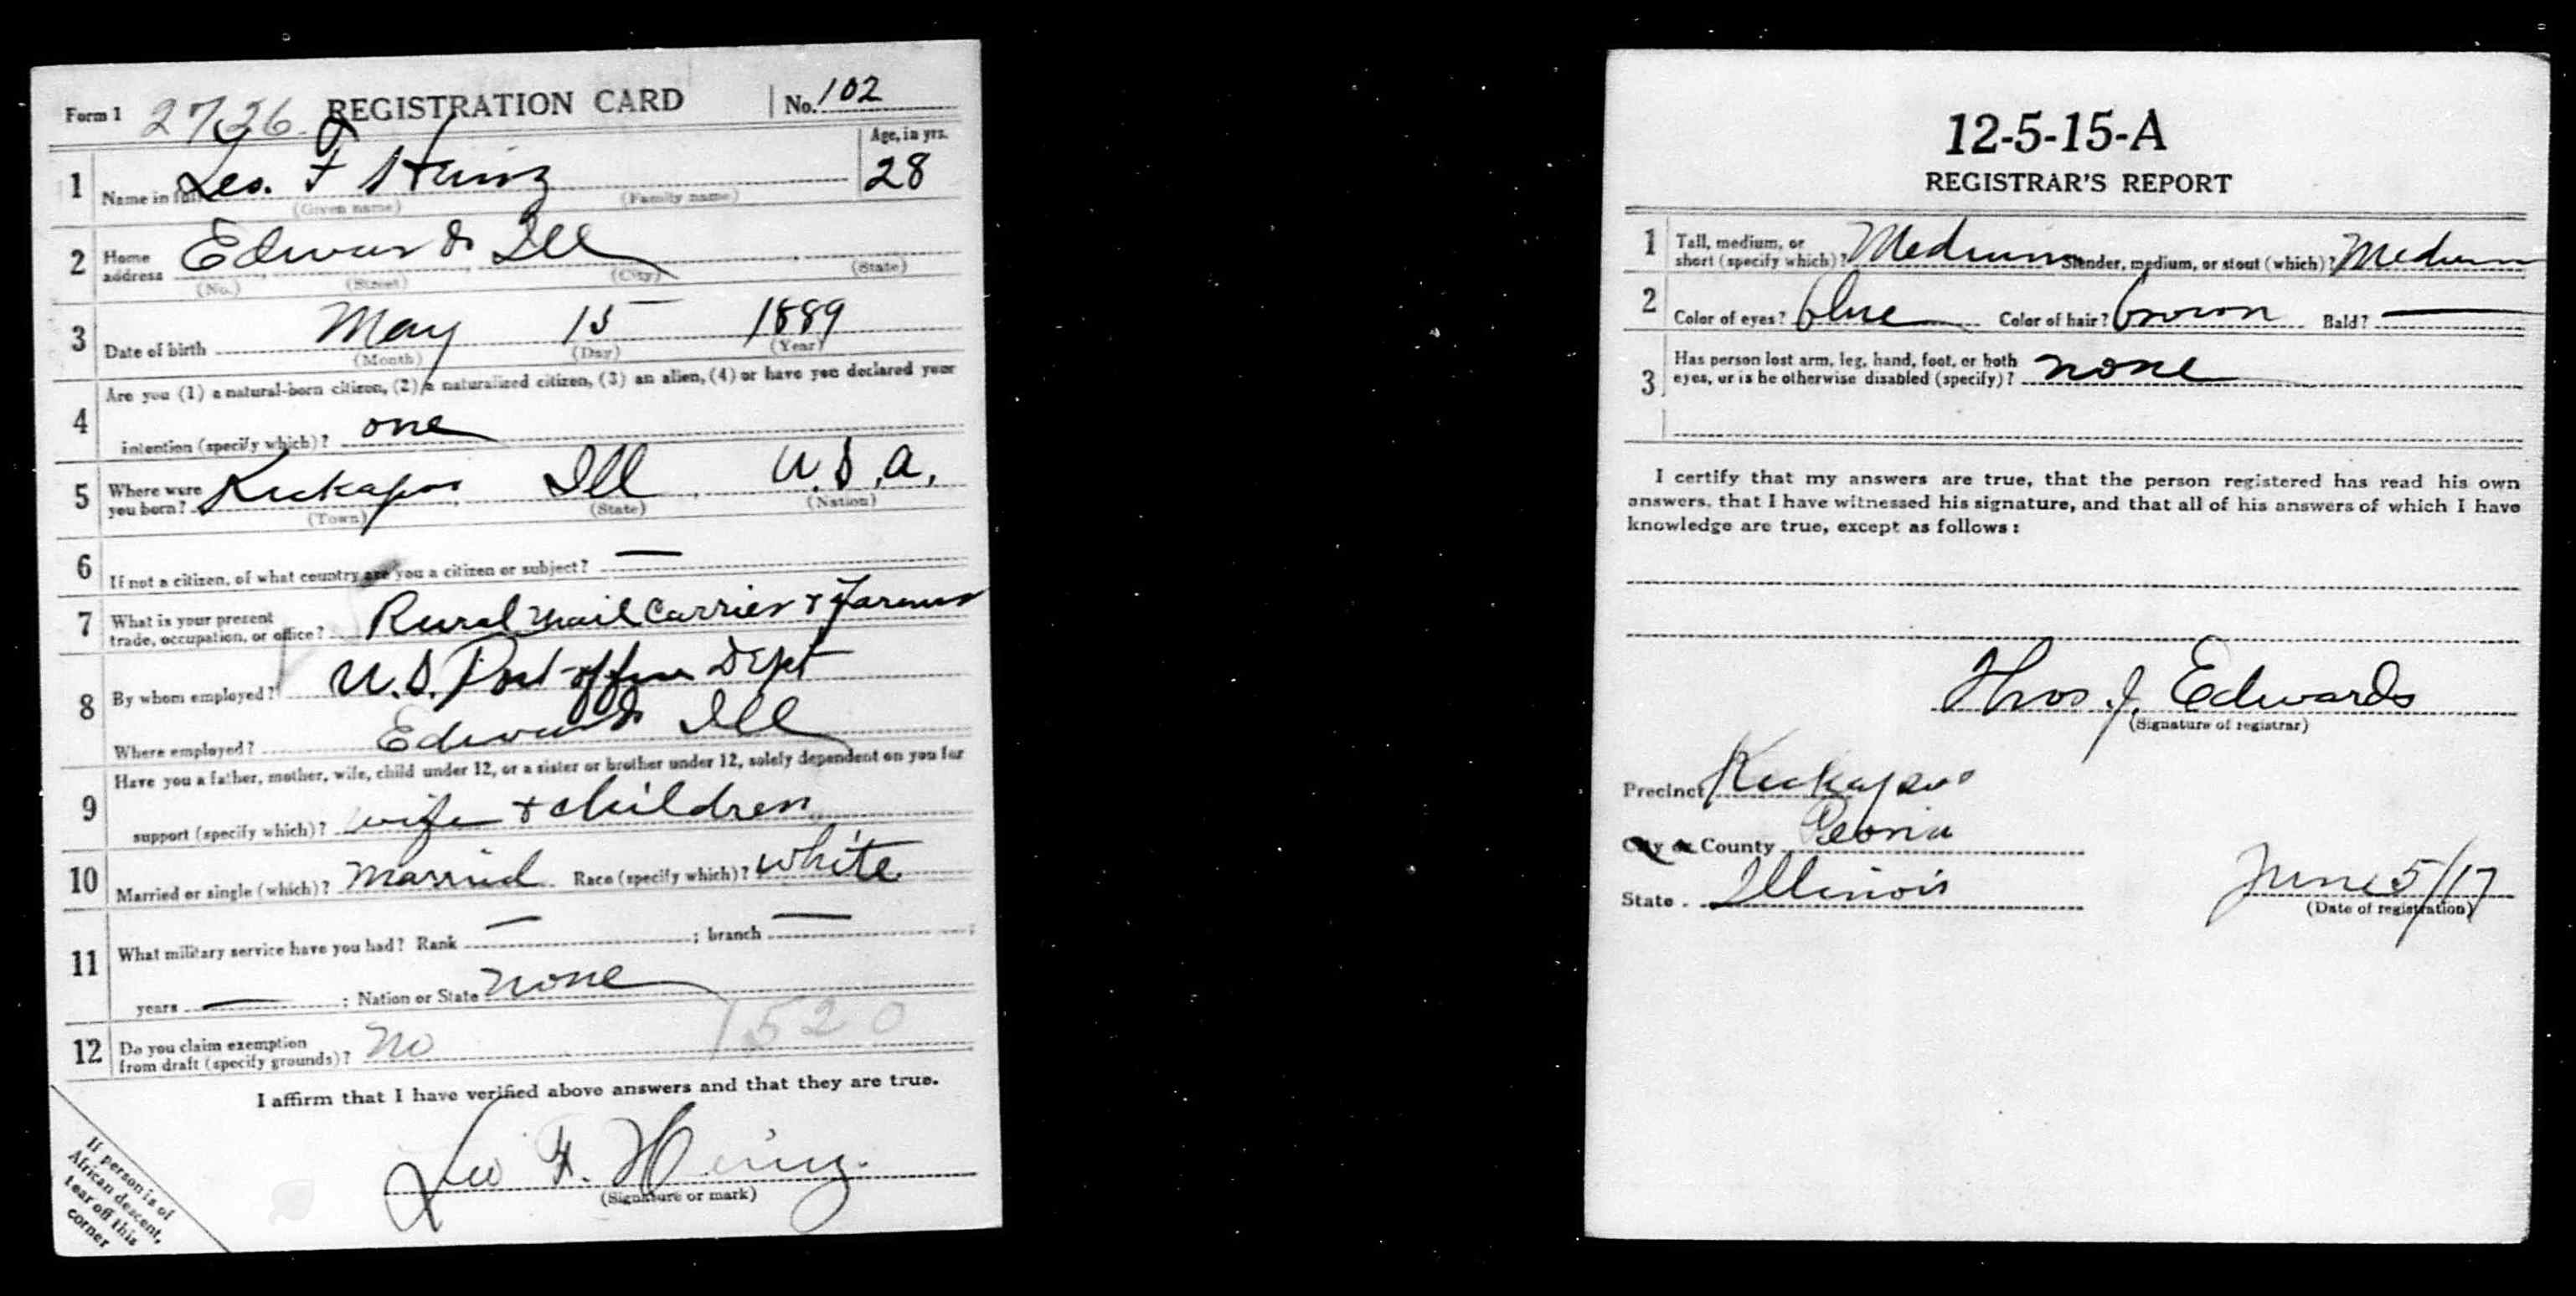 Form 1 2726 REGISTRATION CARD No. 102
1 Name in full Leo. F Heinz Age, in yrs. 28
(Given name) (Family name)
2 Home address Edwards Ill
(No.) (Street) (City) (State)
3 Date of birth May 15 1889
(Month) (Day) (Year)
4 Are you (1) a natural-born citizen, (2) a naturalized citizen, (3) an alien, (4) or have you declared your
intention (specify which)? one
5 Where were you born? Kickapoo Ill U.S.A.
(Town) (State) (Nation)
6 If not a citizen, of what country are you a citizen or subject? —
7 What is your present
trade, occupation, or office? Rural Mail Carrier & Farmer
8 By whom employed? U.S. Post office Dept
Where employed? Edwards Ill
9 Have you a father, mother, wife, child under 12, or a sister or brother under 12, solely dependent on you for
support (specify which)? wife & children
10 Married or single (which)? Married Race (specify which)? White
11 What military service have you had? Rank — ; branch — ;
years — ; Nation or State none
12 Do you claim exemption
from draft (specify grounds)? no 1520
I affirm that I have verified above answers and that they are true.
Leo F. Heinz.
(Signature or mark)
If person is of
African descent,
tear off this
corner
12-5-15-A
REGISTRAR'S REPORT
1 Tall, medium, or
short (specify which)? Medium Slender, medium, or stout (which)? Medium
2 Color of eyes? blue Color of hair? brown Bald? —
3 Has person lost arm, leg, hand, foot, or both
eyes, or is he otherwise disabled (specify)? none
I certify that my answers are true, that the person registered has read his own
answers, that I have witnessed his signature, and that all of his answers of which I have
knowledge are true, except as follows:
Thos J. Edwards
(Signature of registrar)
Precinct Kickapoo
City or County Peoria
State Illinois June 5/17
(Date of registration)